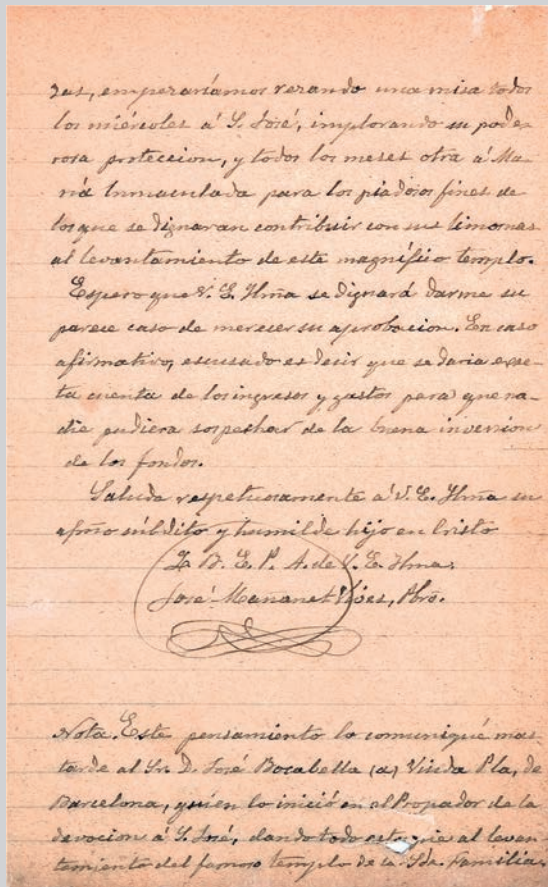 zas, empezaríamos rezando una misa todos
los miércoles á S. José, implorando su pode-
rosa proteccion, y todos los meses otra á Ma-
ría Inmaculada para los piadosos fines de
los que se dignaran contribuir con sus limosnas
al levantamiento de este magnífico templo.
Espero que V. E. Ilma se dignará darme su
parece caso de merecer su aprobacion. En caso
afirmativo, escusado es decir que se daria exac-
ta cuenta de los ingresos y gastos para que na-
die pudiera sospechar de la buena inversion
de los fondos.
Saluda respetuosamente á V. E. Ilma su
afmo súbdito y humilde hijo en Cristo
Q. B. E. P. A. de V. E. Ilma.
José Mañanet Vives, Pbro.
Nota. Este pensamiento lo comuniqué mas
tarde al Sr. D. José Bocabella (a) Viuda Pla, de
Barcelona, quien lo inició en el Propador de la
devocion á S. José, dando todo esto pie al levan-
tamiento del famoso templo de la Sda. Familia.